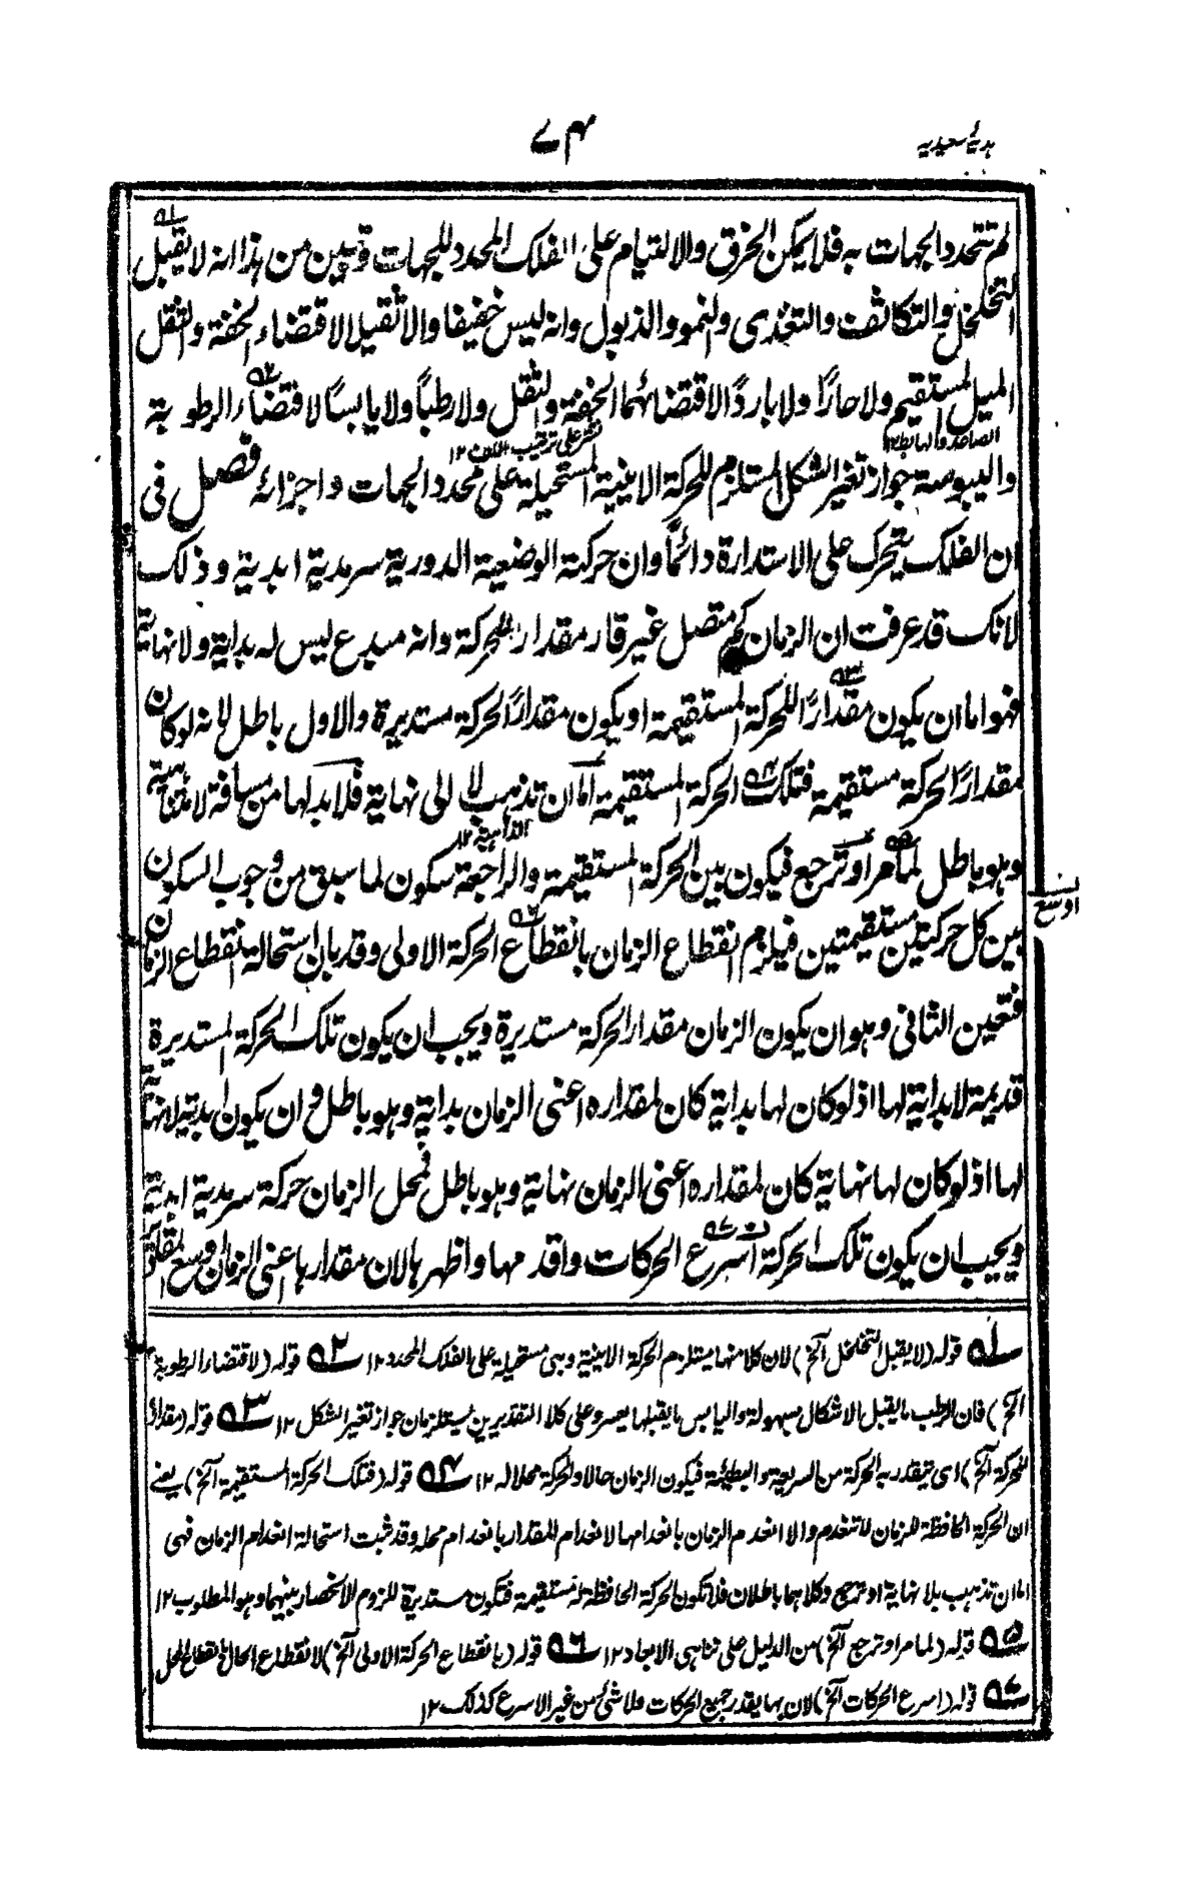 ہدیہ سعیدیہ
۷۴
لم تتحدد الجهات به فلا يمكن الخرق والالتيام على الفلك المحدد للجهات وتبين من هذا انه لا يقبل
التخلخل والتكاثف والتغذي والنمو والذبول وانه ليس خفيفا ولا ثقيلا لاقتضاء الخفة والثقل
الميل المستقيم ولا حارًا ولا باردًا لاقتضائهما الخفة والثقل ولا رطبًا ولا يابسًا لاقتضاء الرطوبة
الصاعد والهابط ۱۲
نشر على ترتيب اللف ۱۲
واليبوسة جواز تغير الشكل المستلزم للحركة الاينية المستحيلة على محدد الجهات واجزائه فصل فى
ان الفلك يتحرك على الاستدارة دائمًا وان حركته الوضعية الدورية سرمدية ابدية وذلك
لانك قد عرفت ان الزمان كم متصل غير قار مقدار للحركة وانه مبدع ليس له بداية ولا نهاية
فهو اما ان يكون مقدارًا للحركة المستقيمة او يكون مقدارًا لحركة مستديرة والاول باطل لانه لو كان
مقدارًا لحركة مستقيمة فتلك الحركة المستقيمة اما ان تذهب لا الى نهاية فلا بد لها من مسافة لا متناهية
وهو باطل لما مر او ترجع فيكون بين الحركة المستقيمة والراجعة سكون لما سبق من وجوب السكون
الذاهبة ۱۲
بين كل حركتين مستقيمتين فيلزم انقطاع الزمان بانقطاع الحركة الاولى وقد بان استحالة انقطاع الزمان
فتعين الثانى وهو ان يكون الزمان مقدار الحركة مستديرة ويجب ان يكون تلك الحركة المستديرة
قديمة لا بداية لها اذ لو كان لها بداية كان لمقداره اعنى الزمان بداية وهو باطل و ان يكون ابدية لا نهاية
لها اذ لو كان لها نهاية كان لمقداره اعنى الزمان نهاية وهو باطل فمحل الزمان حركة سرمدية ابدية
ويجب ان يكون تلك الحركة اسرع الحركات واقدمها واظهرها لان مقدارها اعنى الزمان اوسع المقادير
اوسع
۱ قوله (لا يقبل التخلخل آلخ) لان كلا منها يستلزم الحركة الاينية وهى مستحيلة على الفلك المحدد ۱۲ ۲ قوله (لاقتضاء الرطوبة
آلخ) فان الرطب ما يقبل الاشكال بسهولة واليابس ما يقبلها بعسر وعلى كلا التقديرين يستلزمان جواز تغير الشكل ۱۲ ۳ قوله (مقدارًا
للحركة آلخ) اى تتقدر به الحركة من السريعة والبطيئة فيكون الزمان حالا والحركة محلا له ۱۲ ۴ قوله (فتلك الحركة المستقيمة آلخ) يعنى
ان الحركة الحافظة للزمان لا تنعدم والا انعدم الزمان بانعدامها لانعدام المقدار بانعدام محله وقد ثبت استحالة انعدام الزمان فهى
اما ان تذهب بلا نهاية او ترجع وكلاهما باطلان فلا تكون الحركة الحافظة له مستقيمة فتكون مستديرة للزوم الانحصار بينهما وهو المطلوب ۱۲
۵ قوله (لما مر او ترجع آلخ) من الدليل على تناهى الابعاد ۱۲ ۶ قوله (بانقطاع الحركة الاولى آلخ) لانقطاع الحال بانقطاع المحل
۷ قوله (اسرع الحركات آلخ) لان بها يقدر جميع الحركات ولا شئ من غير الاسرع كذلك ۱۲